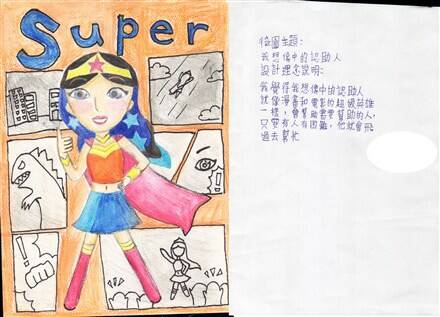 Super
繪圖主題：
我想像中的認助人
設計理念說明：
我覺得我想像中的認助人
就像漫畫和電影的超級英雄
一樣，會幫助需要幫助的人，
只要有人有困難，他就會飛
過去幫忙